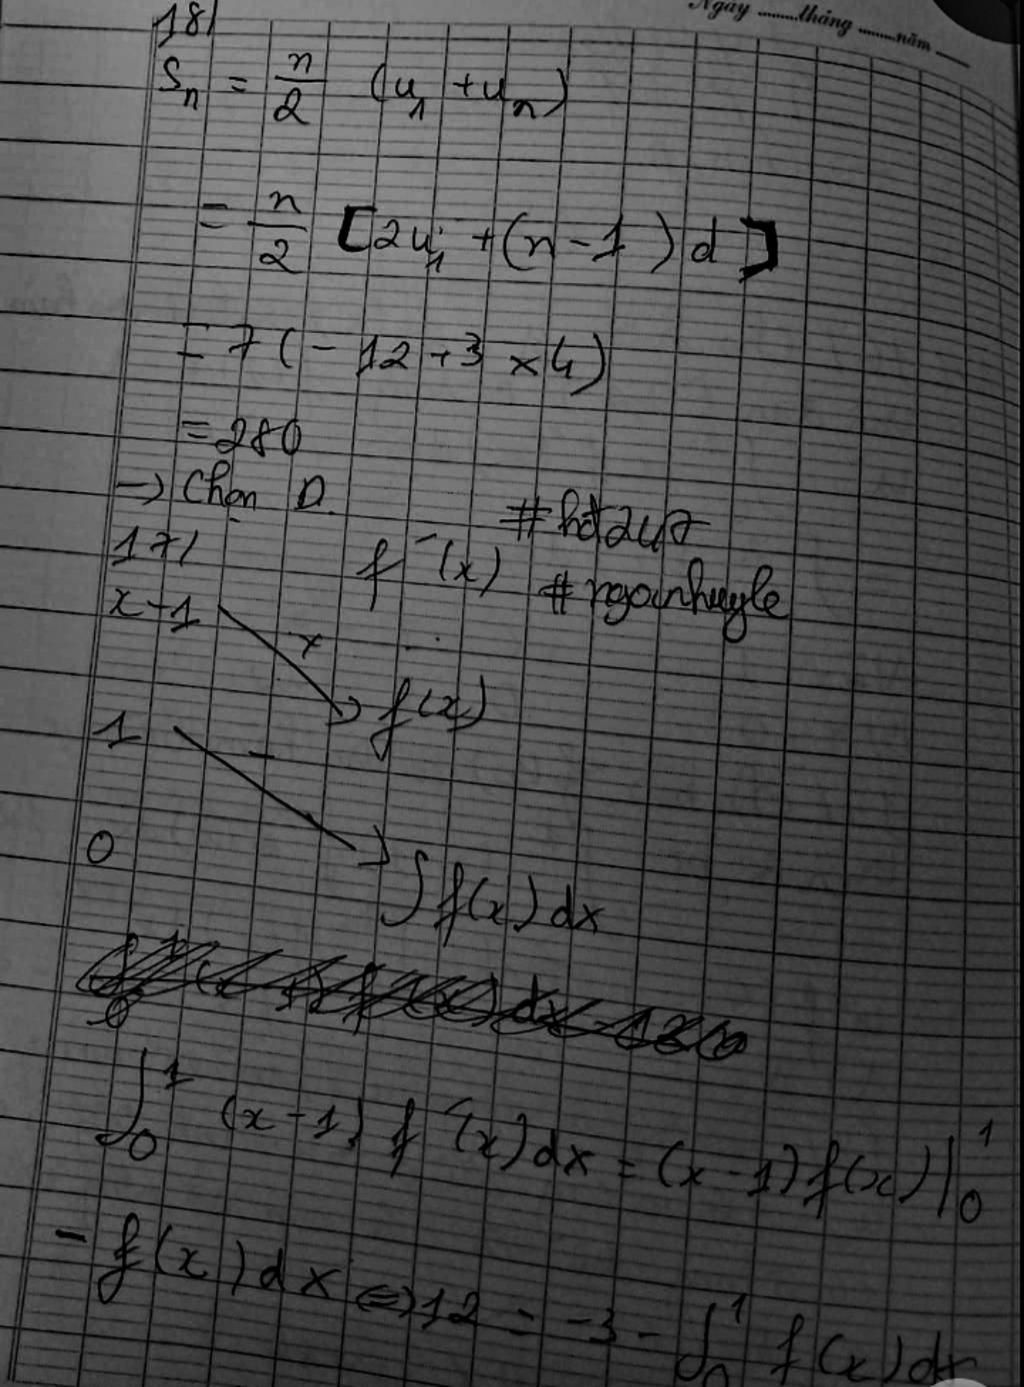 Ngày ........tháng ........năm
18/
Sn = n/2 (u1 + un)
= n/2 [2u1 + (n - 1) d]
= 7 ( - 12 + 3 x 4)
= 280
-> Chọn D.
#hđ247
17/
f'(x)
#ngoinhuyle
x - 1
+
f(x)
1
-
0
∫ f(x) dx
∫₀¹ (x - 1) f'(x) dx = (x - 1) f(x) |₀¹
- f(x) dx <=> 12 = -3 - ∫₀¹ f(x) dx